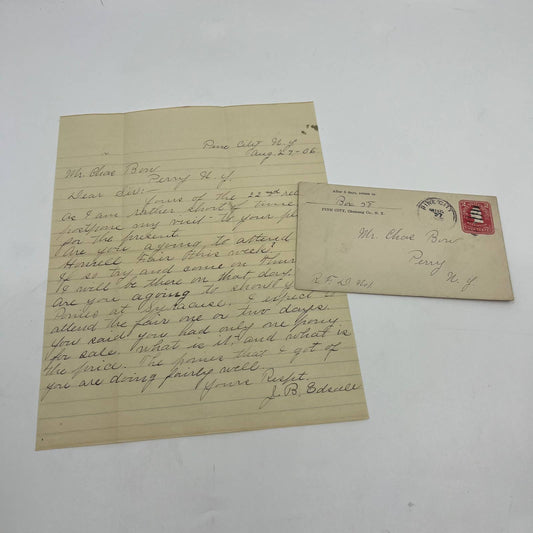 Pine City N.Y
Aug. 27-06
Mr. Chas Bow
Perry N.Y.
Dear Sir:-
Yours of the 22nd rec
As I am rather short of time
postpone my visit to your pl
for the present.
Are you agoing to attend
Hornell Fair this week?
If so try and come on
I will be there on that day.
Are you agoing to show y
Ponies at Syracuse. I expect to
attend the fair one or two days.
You said you had only one pony
for sale. What is it and what is
the price. The ponies that I got of
you are doing fairly well.
Yours Respt.
J. B. Edsall
After 5 days, return to
Box
PINE CITY, Chemung Co., N. Y.
PINE CITY
Mr. Chas Bow
Perry
N. Y
R.F.D. No1